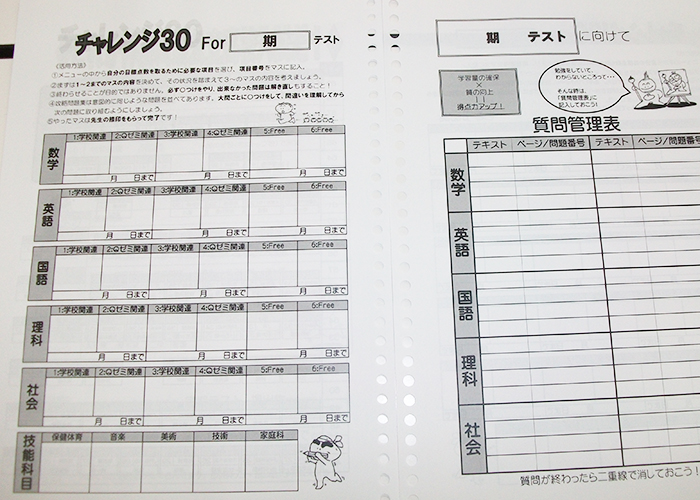 チャレンジ30 For 期 テスト
〈活用方法〉
①メニューの中から自分の目標点数を取るために必要な項目を選び、項目番号をマスに記入。
②まずは1～2までのマスの内容を決めて、その状況を踏まえて3～のマスの内容を考えましょう。
③終わらせることが目的ではありません。必ず〇つけをやり、出来なかった問題は解き直しもすること!
④攻略問題集は意図的に同じような問題を並べてあります。大問ごとに〇つけをして、間違いを理解してから
次の問題に取り組むようにしましょう。
⑤やったマスは先生の捺印をもらって完了です!
数学
1:学校関連 2:Qゼミ関連 3:学校関連 4:Qゼミ関連 5:Free 6:Free
月 日まで 月 日まで 月 日まで
英語
1:学校関連 2:Qゼミ関連 3:学校関連 4:Qゼミ関連 5:Free 6:Free
月 日まで 月 日まで 月 日まで
国語
1:学校関連 2:Qゼミ関連 3:学校関連 4:Qゼミ関連 5:Free 6:Free
月 日まで 月 日まで 月 日まで
理科
1:学校関連 2:Qゼミ関連 3:学校関連 4:Qゼミ関連 5:Free 6:Free
月 日まで 月 日まで 月 日まで
社会
1:学校関連 2:Qゼミ関連 3:学校関連 4:Qゼミ関連 5:Free 6:Free
月 日まで 月 日まで 月 日まで
技能科目
保健体育 音楽 美術 技術 家庭科
期 テスト に向けて
学習量の確保
×
質の向上
||
得点力アップ!
勉強をしていて、
わからないところって・・・
そんな時は、
「質問管理表」に
記入しておこう!
質問管理表
テキスト ページ/問題番号 テキスト ページ/問題番号
数学
英語
国語
理科
社会
質問が終わったら二重線で消しておこう!